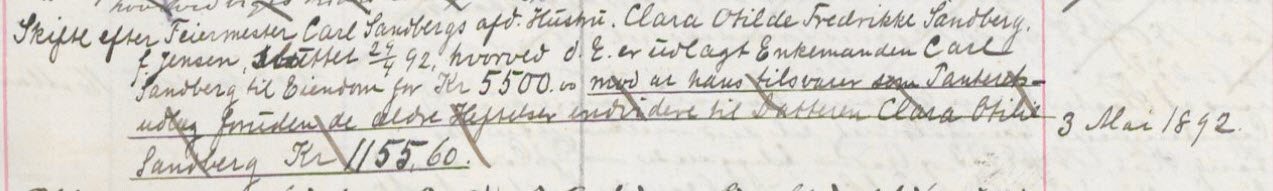 Skifte efter Feiermester Carl Sandbergs afd. Hustru, Clara Otilde Fredrikke Sandberg,
f. Jensen, sluttet 27/4 92, hvorved d. E. er udlagt Enkemanden Carl
Sandberg til Eiendom for Kr 5500.00 mod at hans tilsvarer som Panterets-
udlæg foruden de ældre Heftelser endvidere til Datteren Clara Otilie
Sandberg Kr 1155,60. 3 Mai 1892.